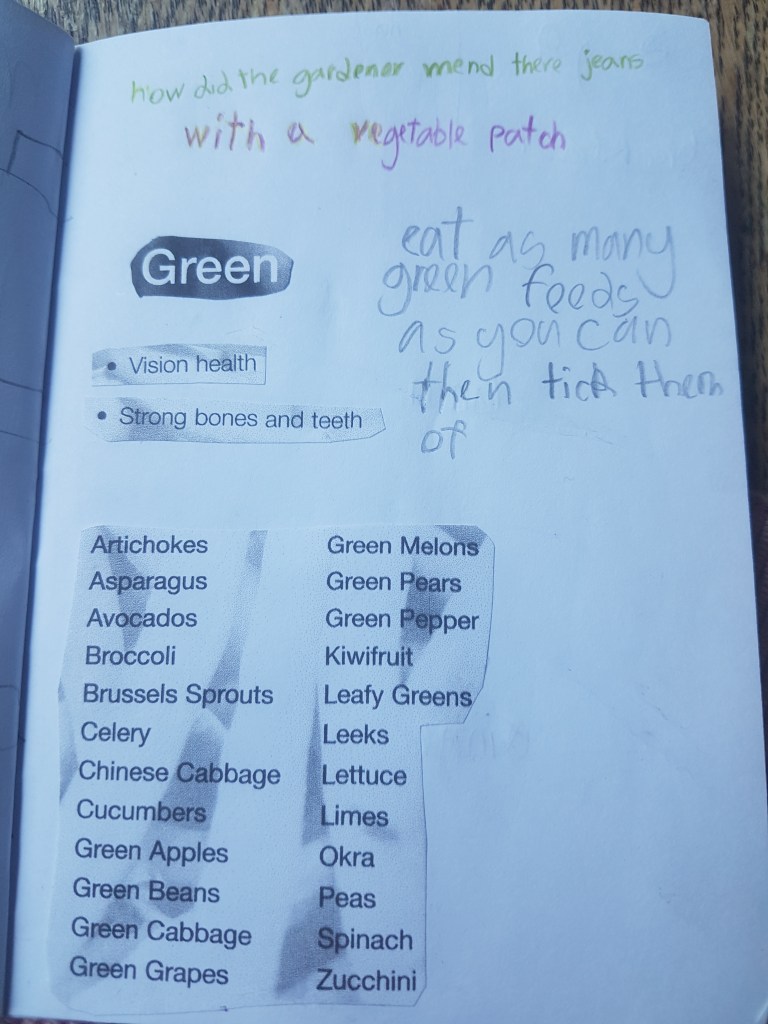 how did the gardener mend there jeans
with a vegetable patch
Green
eat as many
green feeds
as you can
then tick them
of
• Vision health
• Strong bones and teeth
Artichokes
Asparagus
Avocados
Broccoli
Brussels Sprouts
Celery
Chinese Cabbage
Cucumbers
Green Apples
Green Beans
Green Cabbage
Green Grapes
Green Melons
Green Pears
Green Pepper
Kiwifruit
Leafy Greens
Leeks
Lettuce
Limes
Okra
Peas
Spinach
Zucchini